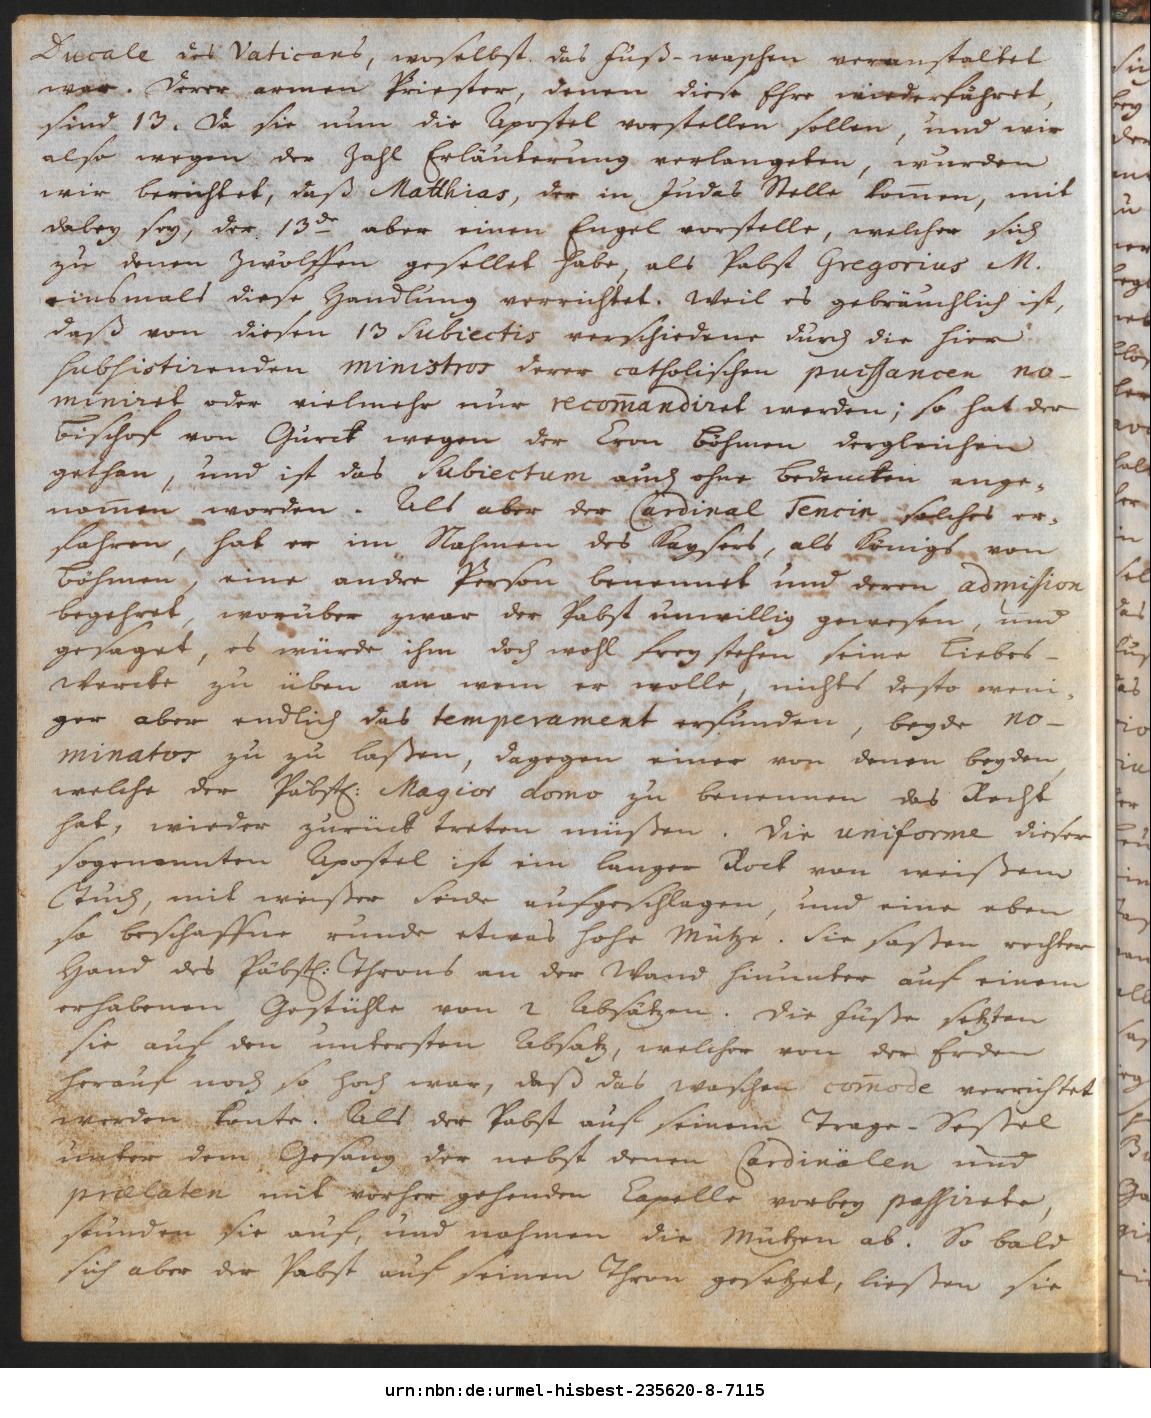 Ducale des Vaticans, woselbst das Fuß-waschen veranstaltet
war. Derer armen Priester, denen diese Ehre wiederfähret,
sind 13. Da sie nun die Apostel vorstellen sollen, und wir
also wegen der Zahl Erläuterung verlangeten, wurden
wir berichtet, daß Matthias, der in Judas Stelle kom̅en, mit
dabey sey, der 13de aber einen Engel vorstelle, welcher sich
zu denen Zwölffen gesellet habe, als Pabst Gregorius M.
einsmals diese Handlung verrichtet. Weil es gebräuchlich ist,
daß von diesen 13 Subiectis verschiedene durch die hier
subsistirenden ministros derer catholischen puissancen no-
miniret oder vielmehr nur recom̅andiret werden; so hat der
Bischof von Gurck wegen der Cron Böhmen dergleichen
gethan, und ist das Subiectum auch ohne Bedencken ange-
nom̅en worden. Als aber der Cardinal Tencin solches er-
fahren, hat er im Nahmen des Kaysers, als Königs von
Böhmen, eine andre Person benennet und deren admission
begehret, worüber zwar der Pabst unwillig gewesen, und
gesaget, es würde ihm doch wohl frey stehen seine Liebes-
Wercke zu üben an wem er wolle, nichts desto weni-
ger aber endlich das temperament erfunden, beyde no-
minatos zu zu laßen, dagegen einer von denen beyden,
welche der Päbstl: Magior domo zu benennen das Recht
hat, wieder zurück treten müßen. Die uniforme dieser
sogenannten Apostel ist ein langer Rock von weißem
Tuch, mit weißer Seide aufgeschlagen, und eine eben
so beschaffne runde etwas hohe Mütze. Sie saßen rechter
Hand des Päbstl: Throns an der Wand hinunter auf einem
erhabenen Gestühle von 2 Absätzen. Die Füße setzten
sie auf den untersten Absatz, welcher von der Erden
herauf noch so hoch war, daß das waschen com̅ode verrichtet
werden konte. Als der Pabst auf seinem Trage-Seßel
unter dem Gesang der nebst denen Cardinälen und
prælaten mit vorher gehenden Capelle vorbey passirete,
stunden sie auf, und nahmen die Mützen ab. So bald
sich aber der Pabst auf seinen Thron gesetzet, ließen sie
urn:nbn:de:urmel-hisbest-235620-8-7115